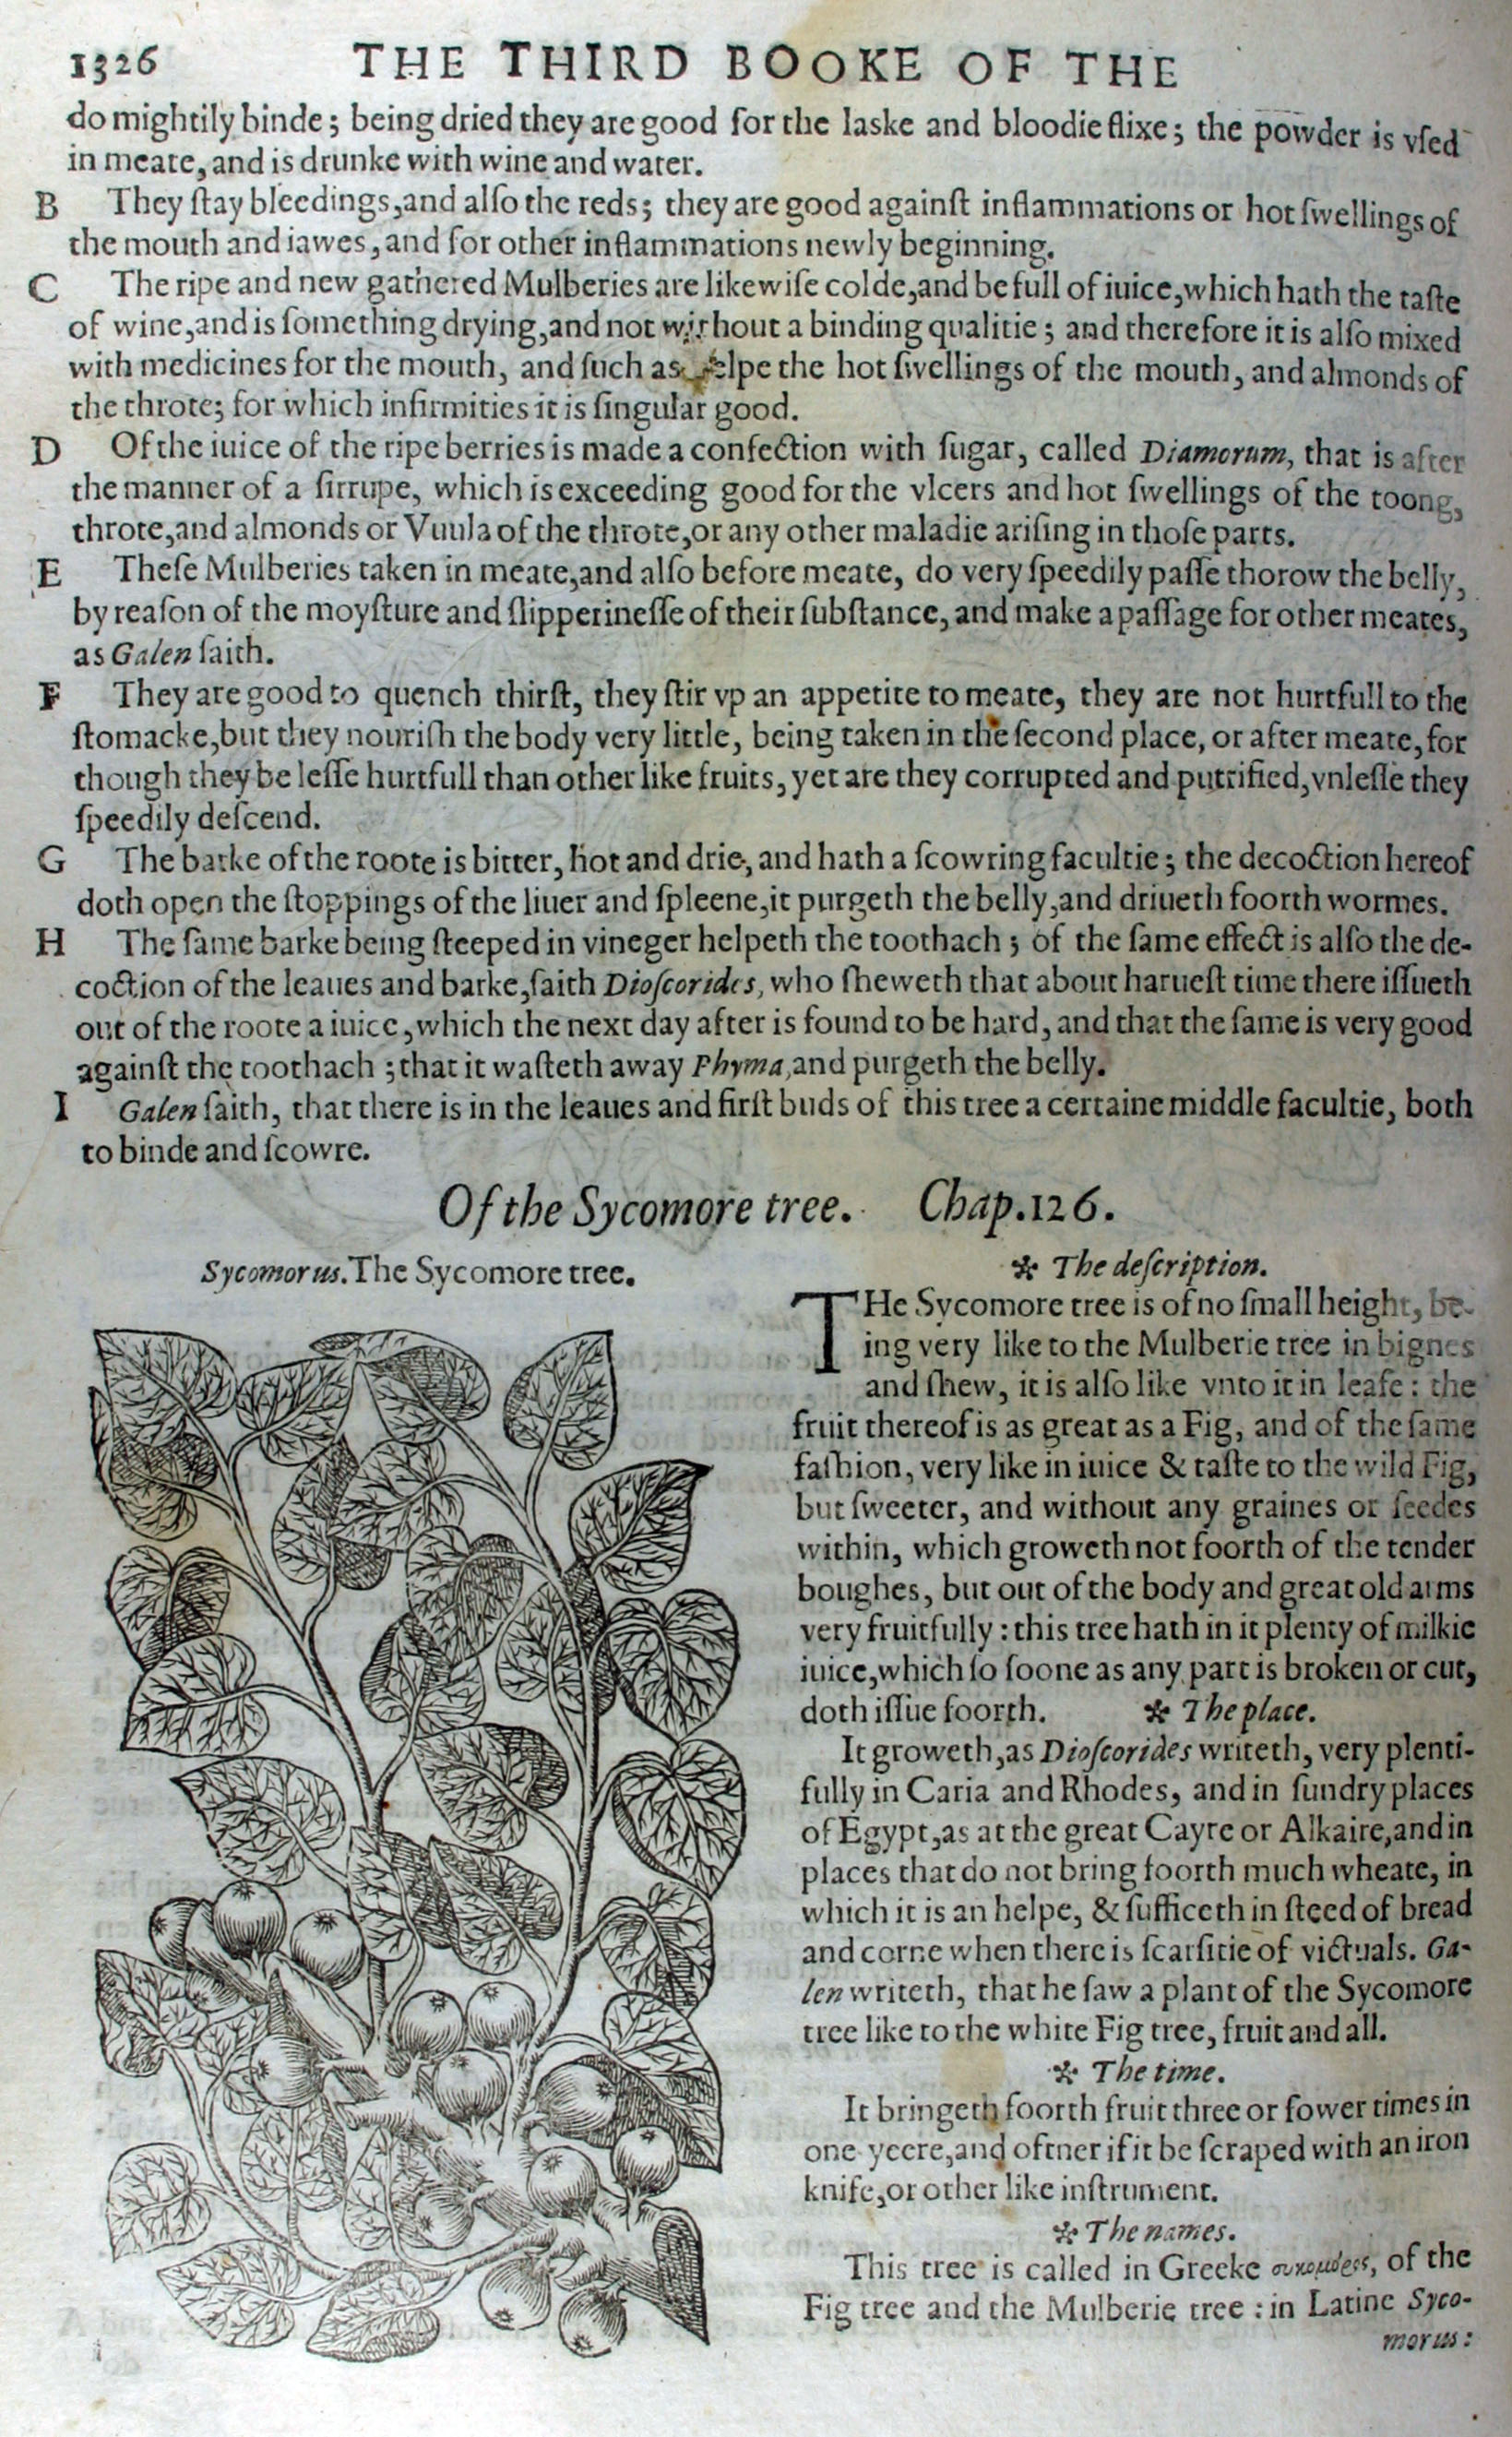 1326 THE THIRD BOOKE OF THE
do mightily binde; being dried they are good for the laske and bloodie flixe; the powder is vſed
in meate, and is drunke with wine and water.
B They ſtay bleedings, and alſo the reds; they are good againſt inflammations or hot ſwellings of
the mouth and iawes, and for other inflammations newly beginning.
C The ripe and new gathered Mulberies are likewiſe colde, and be full of iuice, which hath the taſte
of wine, and is ſomething drying, and not without a binding qualitie; and therefore it is alſo mixed
with medicines for the mouth, and ſuch as helpe the hot ſwellings of the mouth, and almonds of
the throte; for which infirmities it is ſingular good.
D Of the iuice of the ripe berries is made a confection with ſugar, called Diamorum, that is after
the manner of a ſirrupe, which is exceeding good for the vlcers and hot ſwellings of the toong,
throte, and almonds or Vuula of the throte, or any other maladie ariſing in thoſe parts.
E Theſe Mulberies taken in meate, and alſo before meate, do very ſpeedily paſſe thorow the belly,
by reaſon of the moyſture and ſlipperineſſe of their ſubſtance, and make a paſſage for other meates,
as Galen ſaith.
F They are good to quench thirſt, they ſtir vp an appetite to meate, they are not hurtfull to the
ſtomacke, but they nouriſh the body very little, being taken in the ſecond place, or after meate, for
though they be leſſe hurtfull than other like fruits, yet are they corrupted and putrified, vnleſſe they
ſpeedily deſcend.
G The barke of the roote is bitter, hot and drie, and hath a ſcowring facultie; the decoction hereof
doth open the ſtoppings of the liuer and ſpleene, it purgeth the belly, and driueth foorth wormes.
H The ſame barke being ſteeped in vineger helpeth the toothach; of the ſame effect is alſo the de-
coction of the leaues and barke, ſaith Dioſcorides, who ſheweth that about harueſt time there iſſueth
out of the roote a iuice, which the next day after is found to be hard, and that the ſame is very good
againſt the toothach; that it waſteth away Phyma, and purgeth the belly.
I Galen ſaith, that there is in the leaues and firſt buds of this tree a certaine middle facultie, both
to binde and ſcowre.
Of the Sycomore tree. Chap.126.
Sycomorus. The Sycomore tree.
✻ The deſcription.
THe Sycomore tree is of no ſmall height, be-
ing very like to the Mulberie tree in bignes
and ſhew, it is alſo like vnto it in leafe: the
fruit thereof is as great as a Fig, and of the ſame
faſhion, very like in iuice & taſte to the wild Fig,
but ſweeter, and without any graines or ſeedes
within, which groweth not foorth of the tender
boughes, but out of the body and great old arms
very fruitfully: this tree hath in it plenty of milkie
iuice, which ſo ſoone as any part is broken or cut,
doth iſſue foorth. ✻ The place.
It groweth, as Dioſcorides writeth, very plenti-
fully in Caria and Rhodes, and in ſundry places
of Egypt, as at the great Cayre or Alkaire, and in
places that do not bring foorth much wheate, in
which it is an helpe, & ſufficeth in ſteed of bread
and corne when there is ſcarſitie of victuals. Ga-
len writeth, that he ſaw a plant of the Sycomore
tree like to the white Fig tree, fruit and all.
✻ The time.
It bringeth foorth fruit three or fower times in
one yeere, and oftner if it be ſcraped with an iron
knife, or other like inſtrument.
✻ The names.
This tree is called in Greeke of the
Fig tree and the Mulberie tree: in Latine Syco-
morus: